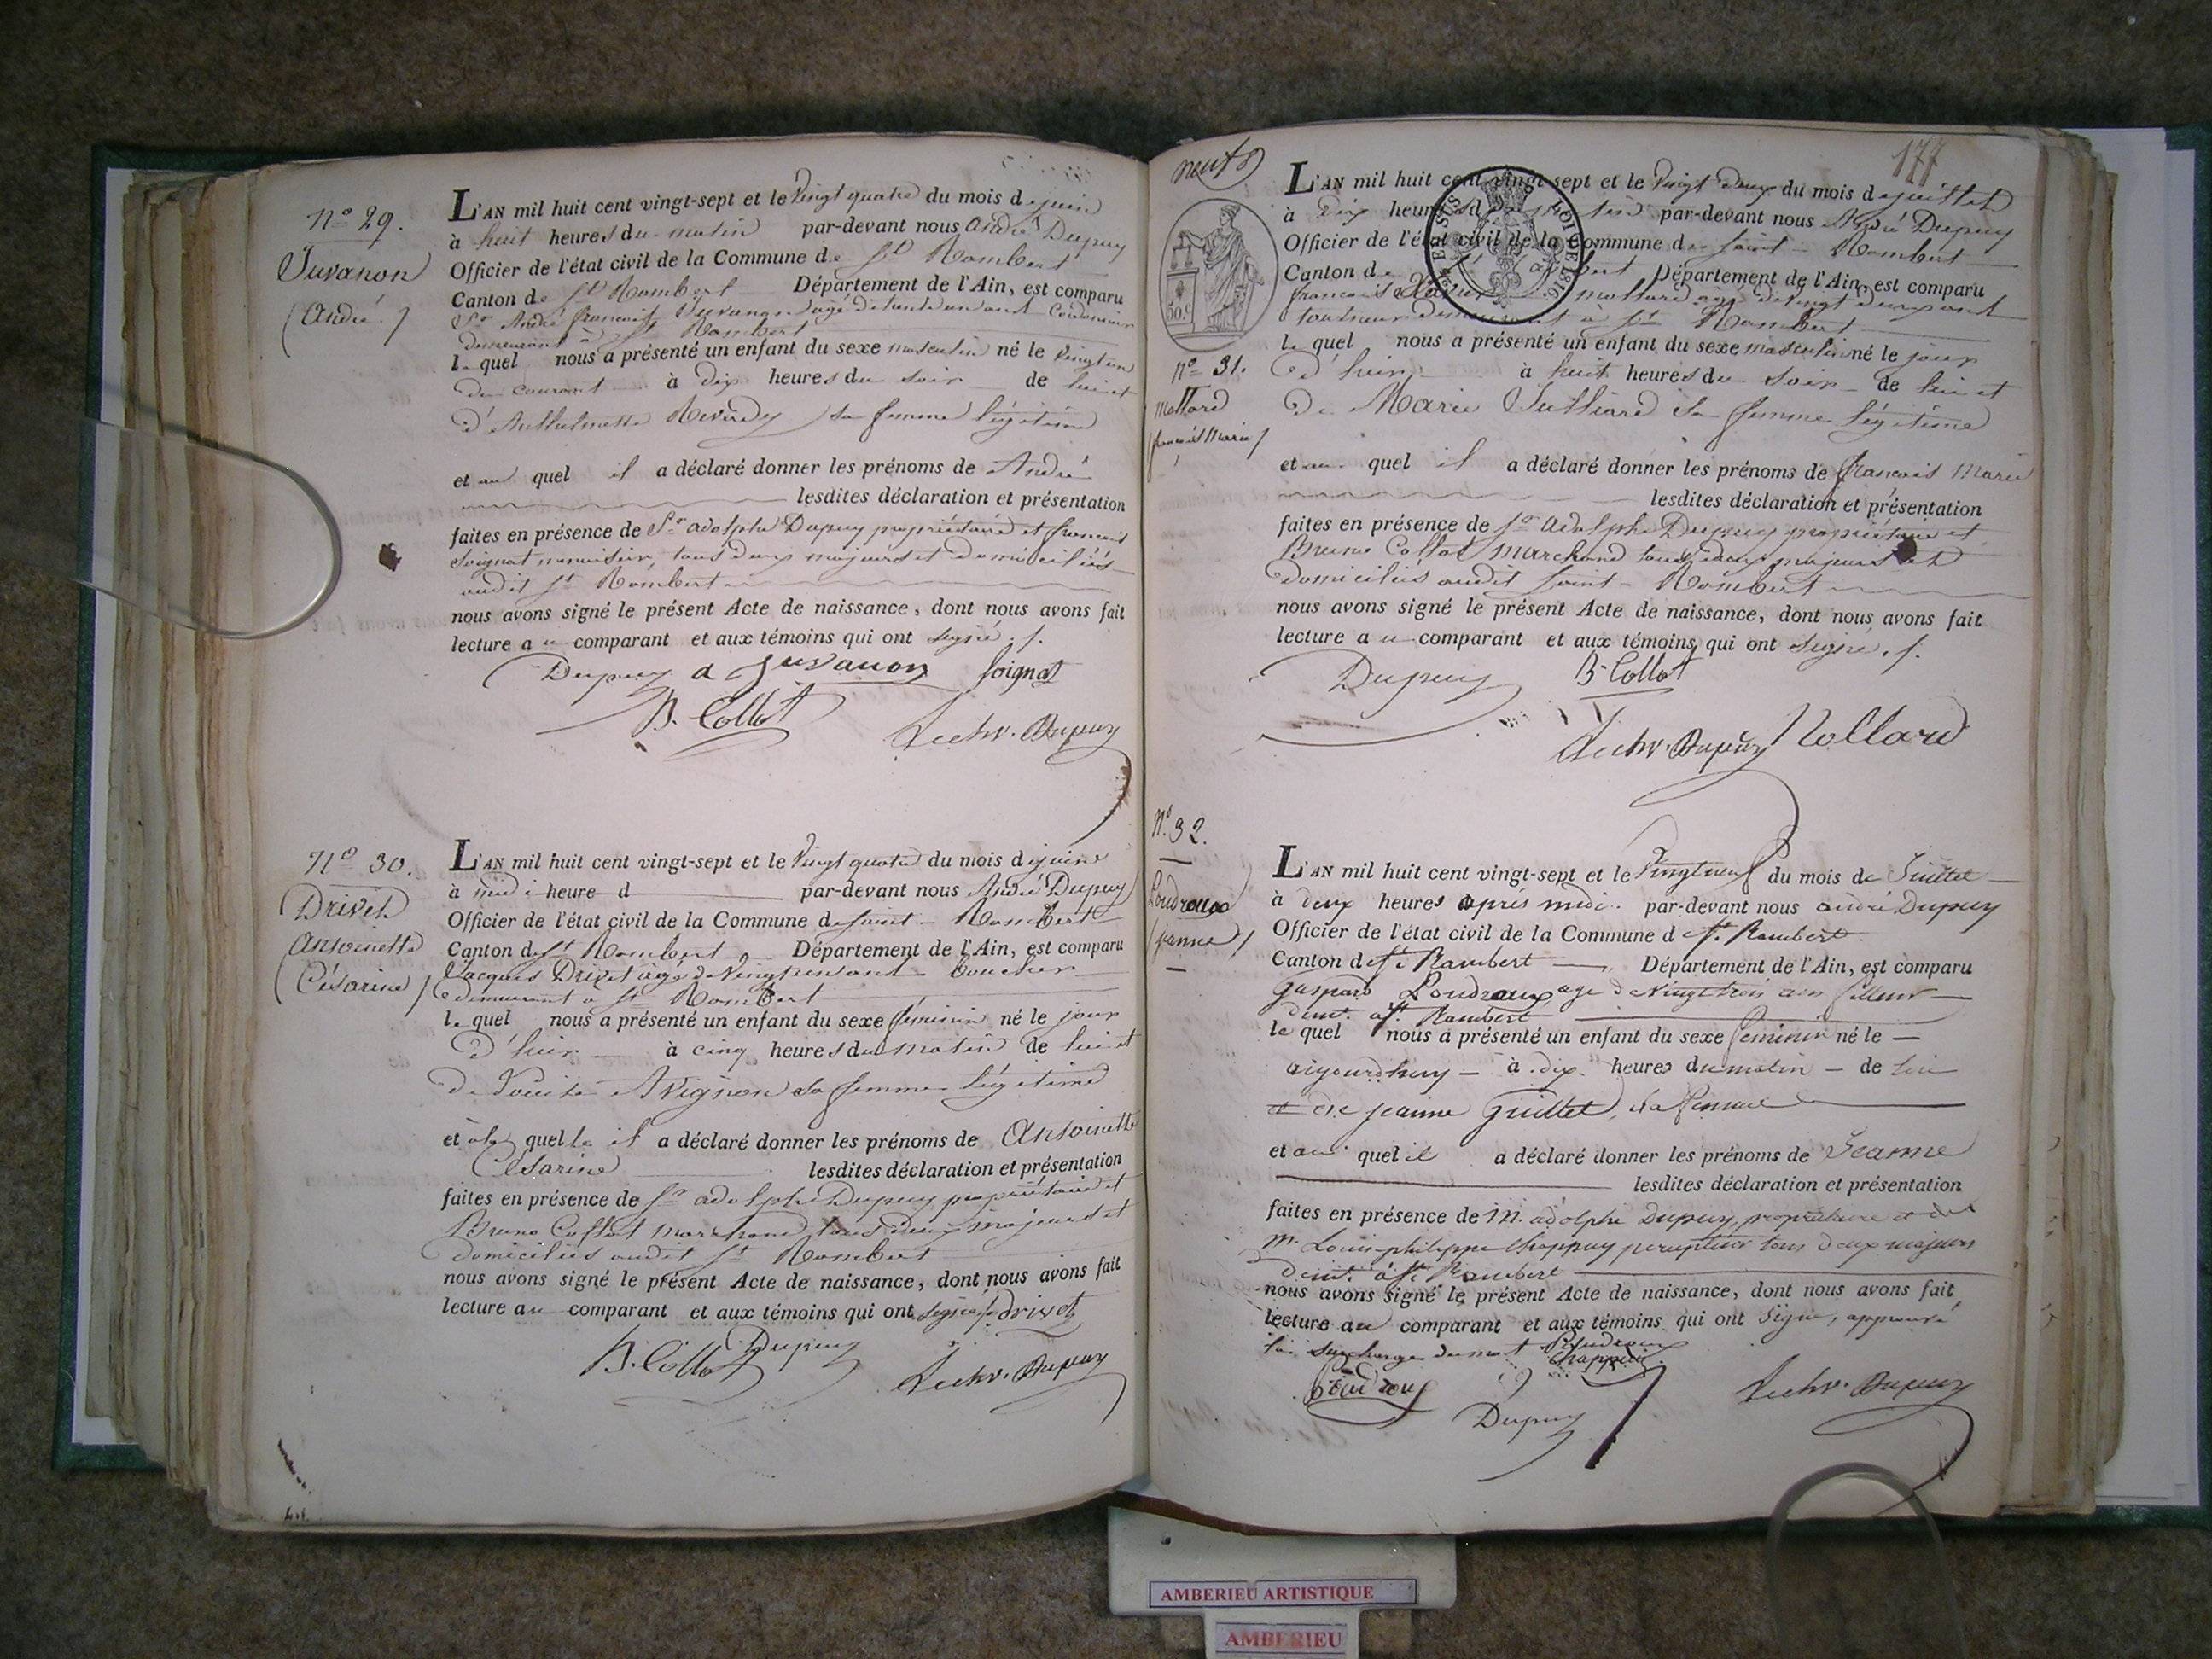 N.o 29.
Juvanon
(André)
L'AN mil huit cent vingt-sept et le Vingt quatre du mois de juin
à huit heures du matin par-devant nous André Dupuy
Officier de l'état civil de la Commune de St Rambert
Canton de St Rambert Département de l'Ain, est comparu
Sr André françois Juvanon âgé de trente un ans
demeurant à St Rambert
le quel nous a présenté un enfant du sexe masculin né le vingt un
du courant à dix heures du soir de lui et
Reverdy sa femme légitime
et au quel il a déclaré donner les prénoms de André
lesdites déclaration et présentation
faites en présence de Sr adolphe Dupuy propriétaire et françois
Soignat menuisier, tous deux majeurs et domiciliés
audit St Rambert
nous avons signé le présent Acte de naissance, dont nous avons fait
lecture au comparant et aux témoins qui ont signé ./.
Dupuy a Juvanon Soignat
B. Collot Dupuy
N.o 30.
Drivet
Antoinette
(Césarine)
L'AN mil huit cent vingt-sept et le Vingt quatre du mois de juin
à midi heure d par-devant nous André Dupuy
Officier de l'état civil de la Commune de Saint-Rambert
Canton de St Rambert Département de l'Ain, est comparu
Jacques Drivet âgé de Vingt ans boucher
demeurant à St Rambert
le quel nous a présenté un enfant du sexe féminin né le jour
d'huir à cinq heures du matin de lui et
de Louise Avignon sa femme légitime
et à la quelle il a déclaré donner les prénoms de Antoinette
Césarine lesdites déclaration et présentation
faites en présence de Sr adolphe Dupuy propriétaire et
Bruno Collot marchand tous deux majeurs et
domiciliés audit St Rambert
nous avons signé le présent Acte de naissance, dont nous avons fait
lecture au comparant et aux témoins qui ont signé ./. drivet
B. Collot Dupuy Dupuy
neuf
177
50.c
LOI DE 1816
N.o 31.
Mollard
(françois Marie)
L'AN mil huit cent vingt-sept et le Vingt deux du mois de juillet
à Dix heures du matin par-devant nous André Dupuy
Officier de l'état civil de la Commune de Saint-Rambert
Canton de Département de l'Ain, est comparu
françois mollard âgé de vingt deux ans
demeurant à St Rambert
le quel nous a présenté un enfant du sexe masculin né le jour
d'huir à huit heures du soir de lui et
de Marie Juilliard sa femme légitime
et au quel il a déclaré donner les prénoms de françois Marie
lesdites déclaration et présentation
faites en présence de Sr Adolphe Dupuy propriétaire et
Bruno Collot Marchand tous deux majeurs et
domiciliés audit Saint-Rambert
nous avons signé le présent Acte de naissance, dont nous avons fait
lecture au comparant et aux témoins qui ont signé ./.
Dupuy B. Collot
Dupuy Mollard
N.o 32.
Loudroux
(jeanne)
L'AN mil huit cent vingt-sept et le Vingt neuf du mois de Juillet
à deux heures après midi par-devant nous andré Dupuy
Officier de l'état civil de la Commune d St. Rambert
Canton de St. Rambert Département de l'Ain, est comparu
Gaspard Loudroux age de Vingt trois ans
demt. à St. Rambert
le quel nous a présenté un enfant du sexe féminin né le
aujourdhuy à dix heures du matin de lui
et de jeanne Guillet, sa femme
et au quel il a déclaré donner les prénoms de Jeanne
lesdites déclaration et présentation
faites en présence de M. adolphe Dupuy, propriétaire et de
M. Louis philippe Chappuy percepteur tous deux majeurs
demt. à St. Rambert
nous avons signé le présent Acte de naissance, dont nous avons fait
lecture au comparant et aux témoins qui ont Signé, approuvé
la surcharge du mot Loudroux
Chappuy
Loudroux Dupuy Dupuy
AMBERIEU ARTISTIQUE
AMBERIEU